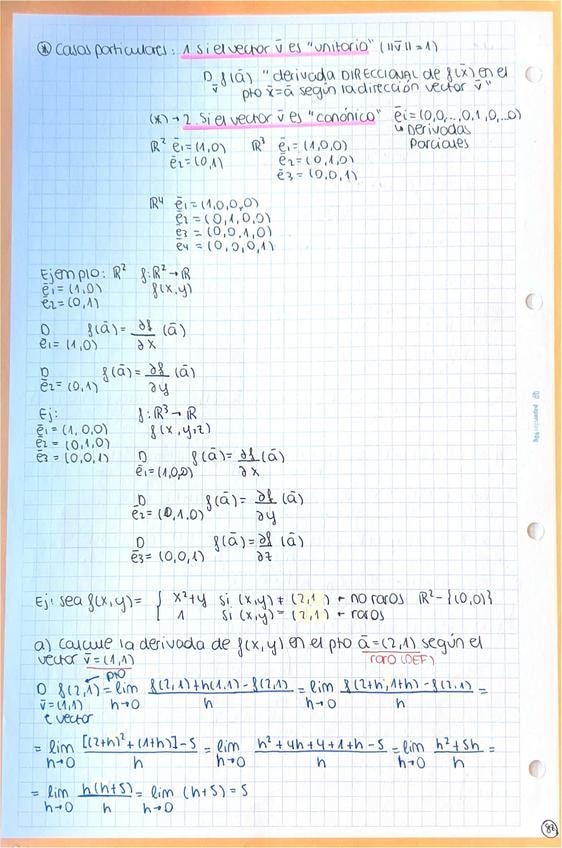 ⊛ Casos particulares: 1 Si el vector v̄ es "unitario" (||v̄||=1)
D f(ā) "derivada DIRECCIONAL de f(x̄) en el
v̄ pto x̄=ā según la dirección vector v̄"
(*)→2. Si el vector v̄ es "canónico" ēi=(0,0,..,0,1,0,..0)
↳ Derivadas
Parciales
ℝ² ē1=(1,0) ℝ³ ē1=(1,0,0)
ē2=(0,1) ē2=(0,1,0)
ē3=(0,0,1)
ℝ⁴ ē1=(1,0,0,0)
ē2=(0,1,0,0)
ē3=(0,0,1,0)
ē4=(0,0,0,1)
Ejemplo: ℝ² f:ℝ²→ℝ
ē1=(1,0) f(x,y)
ē2=(0,1)
D f(ā)= ∂f/∂x (ā)
ē1=(1,0)
D f(ā)= ∂f/∂y (ā)
ē2=(0,1)
Ej: f:ℝ³→ℝ
ē1=(1,0,0) f(x,y,z)
ē2=(0,1,0)
ē3=(0,0,1) D f(ā)= ∂f/∂x (ā)
ē1=(1,0,0)
D f(ā)= ∂f/∂y (ā)
ē2=(0,1,0)
D f(ā)= ∂f/∂z (ā)
ē3=(0,0,1)
Ej: sea f(x,y)= { x²+y si (x,y)≠(2,1) ← no raros ℝ²-{(0,0)}
1 si (x,y)=(2,1) ← raros
a) Calcule la derivada de f(x,y) en el pto ā=(2,1) según el
vector v̄=(1,1) raro (DEF)
pto
D f(2,1)= lim h→0 f(2,1)+h(1,1)-f(2,1)/h = lim h→0 f(2+h,1+h)-f(2,1)/h =
v̄=(1,1)
vector
= lim h→0 [(2+h)²+(1+h)]-5/h = lim h→0 h²+4h+4+1+h-5/h = lim h→0 h²+5h/h =
= lim h→0 h(h+5)/h = lim h→0 (h+5)=5
82